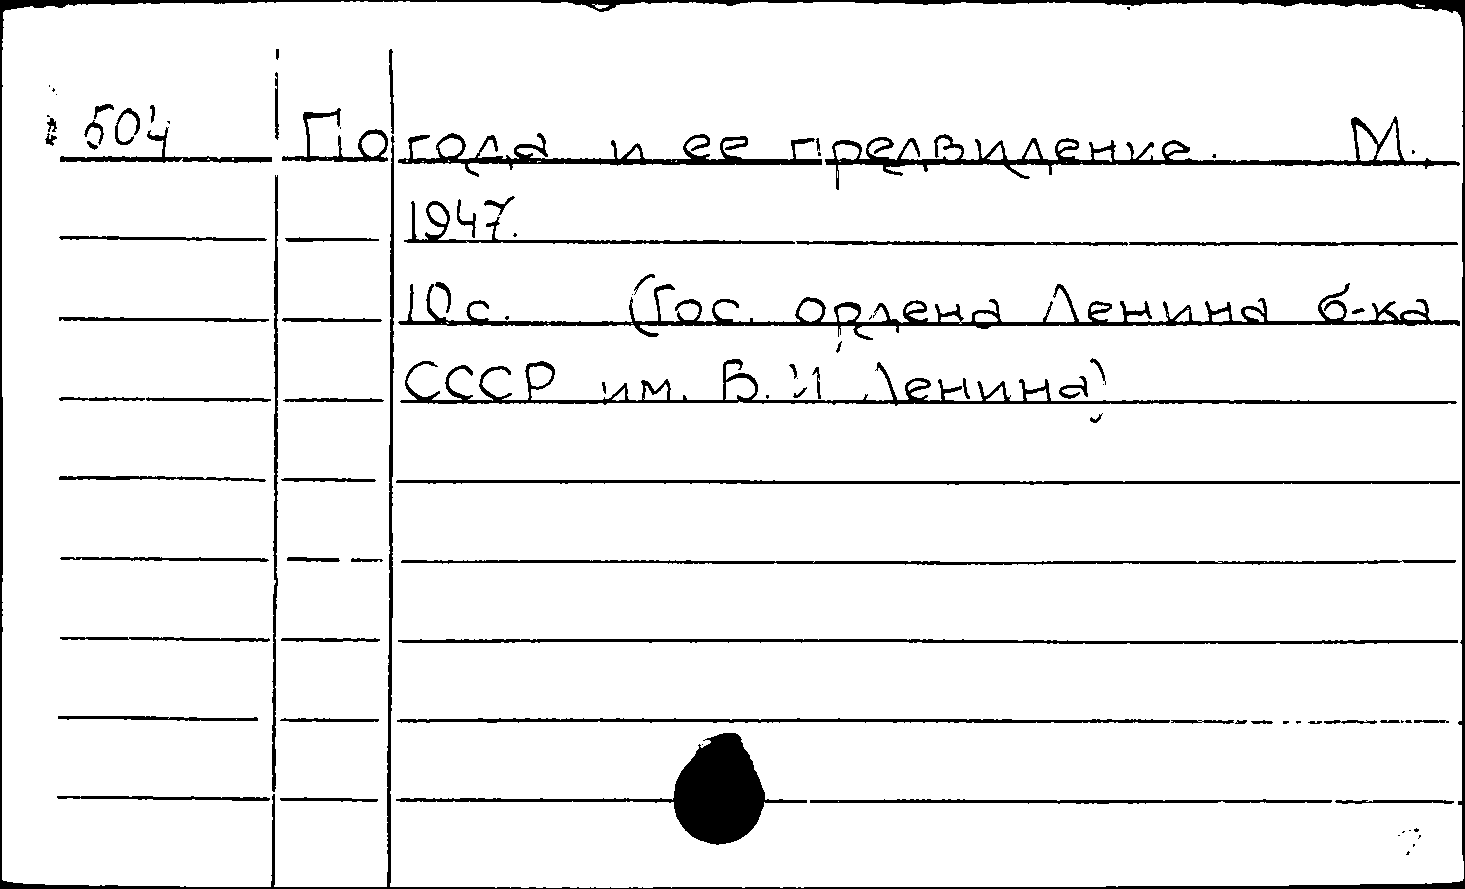 504 Погода и ее предвидение. М.,
1947.
10с. (Гос. ордена Ленина б-ка
СССР им. В. И Ленина)